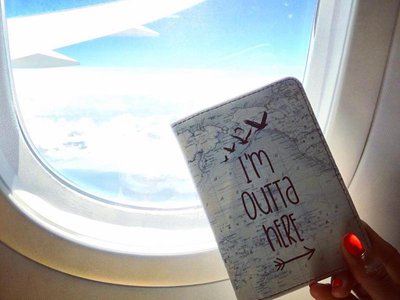 I'm
OUTTA
HERE